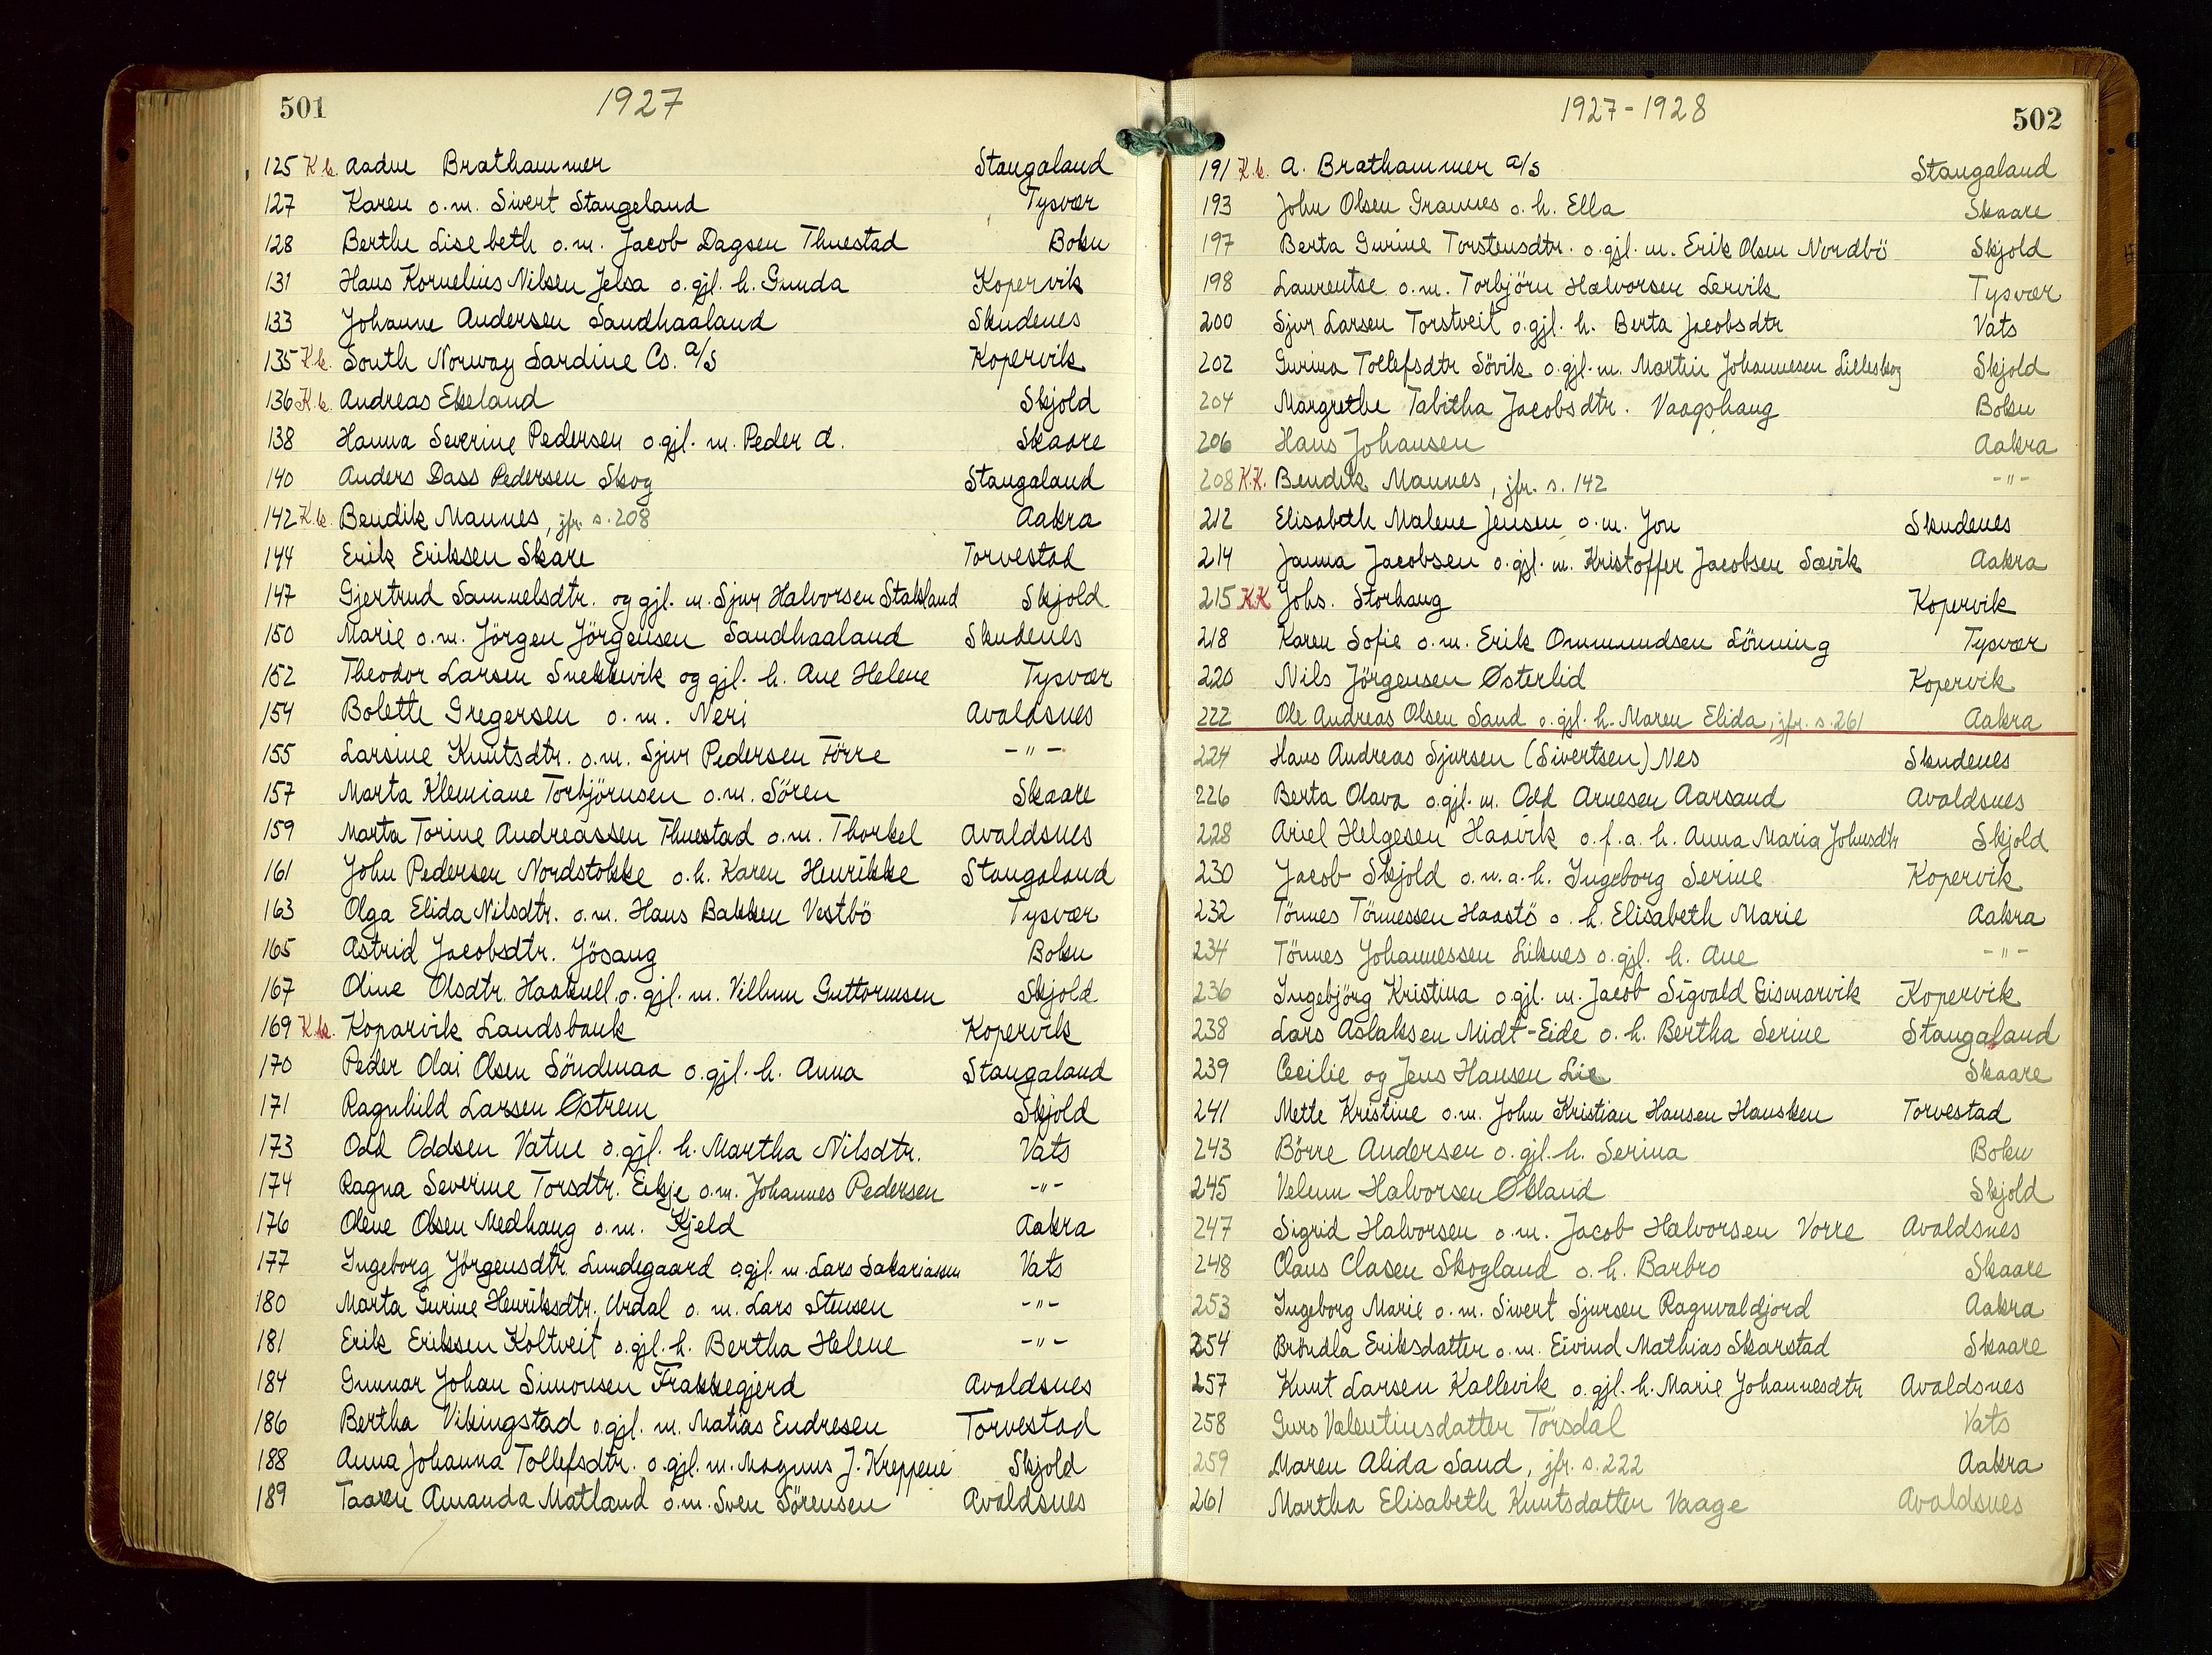 501
1927
125 K.k. Aadne Brathammer Stangaland
127 Karen o.m. Sivert Stangeland Tysvær
128 Berthe Lisebeth o.m. Jacob Dagsen Thuestad Bokn
131 Hans Kornelius Nilsen Jelsa o.gjl. h. Gunda Kopervik
133 Johanne Andersen Sandhaaland Skudenes
135 K.k. South Norway Sardine Co. A/S Kopervik
136 K.k. Andreas Ekeland Skjold
138 Hanna Severine Pedersen o.gjl. m. Peder A. Skaare
140 Anders Dass Pedersen Skog Stangaland
142 K.k. Bendik Mannes, jfr. s. 208 Aakra
144 Erik Eriksen Skare Torvestad
147 Gjertrud Samuelsdtr. og gjl. m. Sjur Halvorsen Stakland Skjold
150 Marie o.m. Jörgen Jörgensen Sandhaaland Skudenes
152 Theodor Larsen Snekkevik og gjl. h. Ane Helene Tysvær
154 Bolette Gregersen o.m. Neri Avaldsnes
155 Larsine Knutsdtr. o.m. Sjur Pedersen Förre -"-
157 Marta Klemiane Torbjörnsen o.m. Sören Skaare
159 Marta Torine Andreassen Thuestad o.m. Thorkel Avaldsnes
161 John Pedersen Nordstokke o.h. Karen Henrikke Stangaland
163 Olga Elida Nilsdtr. o.m. Hans Bakken Vestbö Tysvær
165 Astrid Jacobsdtr. Jösang Bokn
167 Oline Olsdtr. Haakull o.gjl. m. Villum Guttormsen Skjold
169 K.k. Koparvik Landsbank Kopervik
170 Peder Olai Olsen Söndmaa o.gjl. h. Anna Stangaland
171 Ragnhild Larsen Østrem Skjold
173 Odd Oddsen Vatne o.gjl. h. Martha Nilsdtr. Vats
174 Ragna Severine Torsdtr. Eikje o.m. Johannes Pedersen -"-
176 Olene Olsen Medhaug o.m. Kjeld Aakra
177 Ingeborg Jörgensdtr. Lundegaard o.gjl. m. Lars Sakariassen Vats
180 Marta Gurine Henriksdtr. Urdal o.m. Lars Stensen -"-
181 Erik Eriksen Koltveit o.gjl. h. Bertha Helene -"-
184 Gunnar Johan Simonsen Frakkegjerd Avaldsnes
186 Bertha Vikingstad o.gjl. m. Matias Endresen Torvestad
188 Anna Johanna Tollefsdtr. o.gjl. m. Magnus J. Kreppene Skjold
189 Taaren Amanda Matland o.m. Sven Sörensen Avaldsnes
1927-1928
502
191 K.k. A. Brathammer A/S Stangaland
193 John Olsen Grannes o. h. Ella Skaare
197 Berta Gurine Torstensdtr. o.gjl. m. Erik Olsen Nordbö Skjold
198 Laurentse o.m. Torbjörn Halvorsen Lervik Tysvær
200 Sjur Larsen Torstveit o.gjl. h. Berta Jacobsdtr Vats
202 Gurina Tollefsdtr Sövik o.gjl. m. Martin Johannesen Lilleskog Skjold
204 Margrethe Tabitha Jacobsdtr. Vaagshaug Bokn
206 Hans Johansen Aakra
208 K.K. Bendik Mannes, jfr. s. 142 -"-
212 Elisabeth Malene Jensen o.m. Jon Skudenes
214 Janna Jacobsen o.gjl. m. Kristoffer Jacobsen Sævik Aakra
215 K.K Johs. Storhaug Kopervik
218 Karen Sofie o.m. Erik Ommundsen Lönning Tysvær
220 Nils Jörgensen Østerlid Kopervik
222 Ole Andreas Olsen Sand o.gjl. h. Maren Elida, jfr. s. 261 Aakra
224 Hans Andreas Sjursen (Sivertsen) Nes Skudenes
226 Berta Olava o.gjl. m. Odd Arnesen Aarsand Avaldsnes
228 Ariel Helgesen Haavik o. f. a. h. Anna Maria Johnsdtr Skjold
230 Jacob Skjold o. m. a. h. Ingeborg Serine Kopervik
232 Tönnes Tönnessen Haastö o. h. Elisabeth Marie Aakra
234 Tönnes Johannessen Liknes o.gjl. h. Ane -"-
236 Ingebjörg Kristina o.gjl. m. Jacob Sigvald Gismarvik Kopervik
238 Lars Aslaksen Midt-Eide o. h. Bertha Serine Stangaland
239 Cecilie og Jens Hansen Lie Skaare
241 Mette Kristine o.m. John Kristian Hansen Hausken Torvestad
243 Börre Andersen o.gjl. h. Serina Bokn
245 Velum Halvorsen Økland Skjold
247 Sigrid Halvorsen o.m. Jacob Halvorsen Vorre Avaldsnes
248 Claus Clasen Skogland o. h. Barbro Skaare
253 Ingeborg Marie o.m. Sivert Sjursen Ragnvaldjord Aakra
254 Bröndla Eriksdatter o.m. Eivind Mathias Skarstad Skaare
257 Knut Larsen Kallevik o.gjl. h. Marie Johannesdtr Avaldsnes
258 Guro Valentinsdatter Törsdal Vats
259 Maren Alida Sand, jfr. s. 222 Aakra
261 Martha Elisabeth Knutsdatter Vaage Avaldsnes